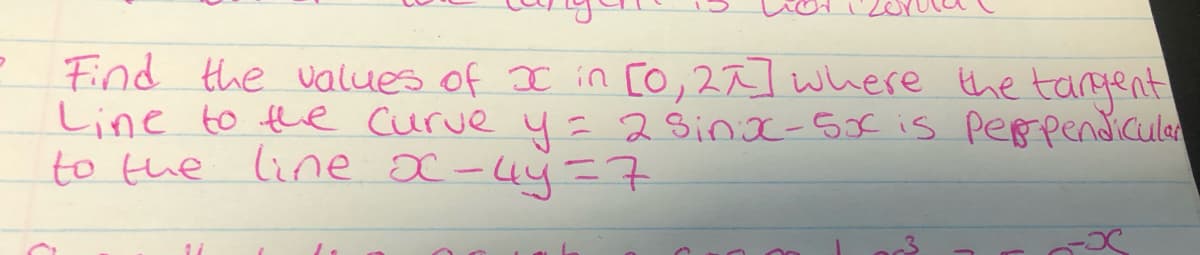 Find the values of x in [0,2π] where the tangent
Line to the curve y = 2 sinx - 5x is perpendicular
to the line x - 4y = 7